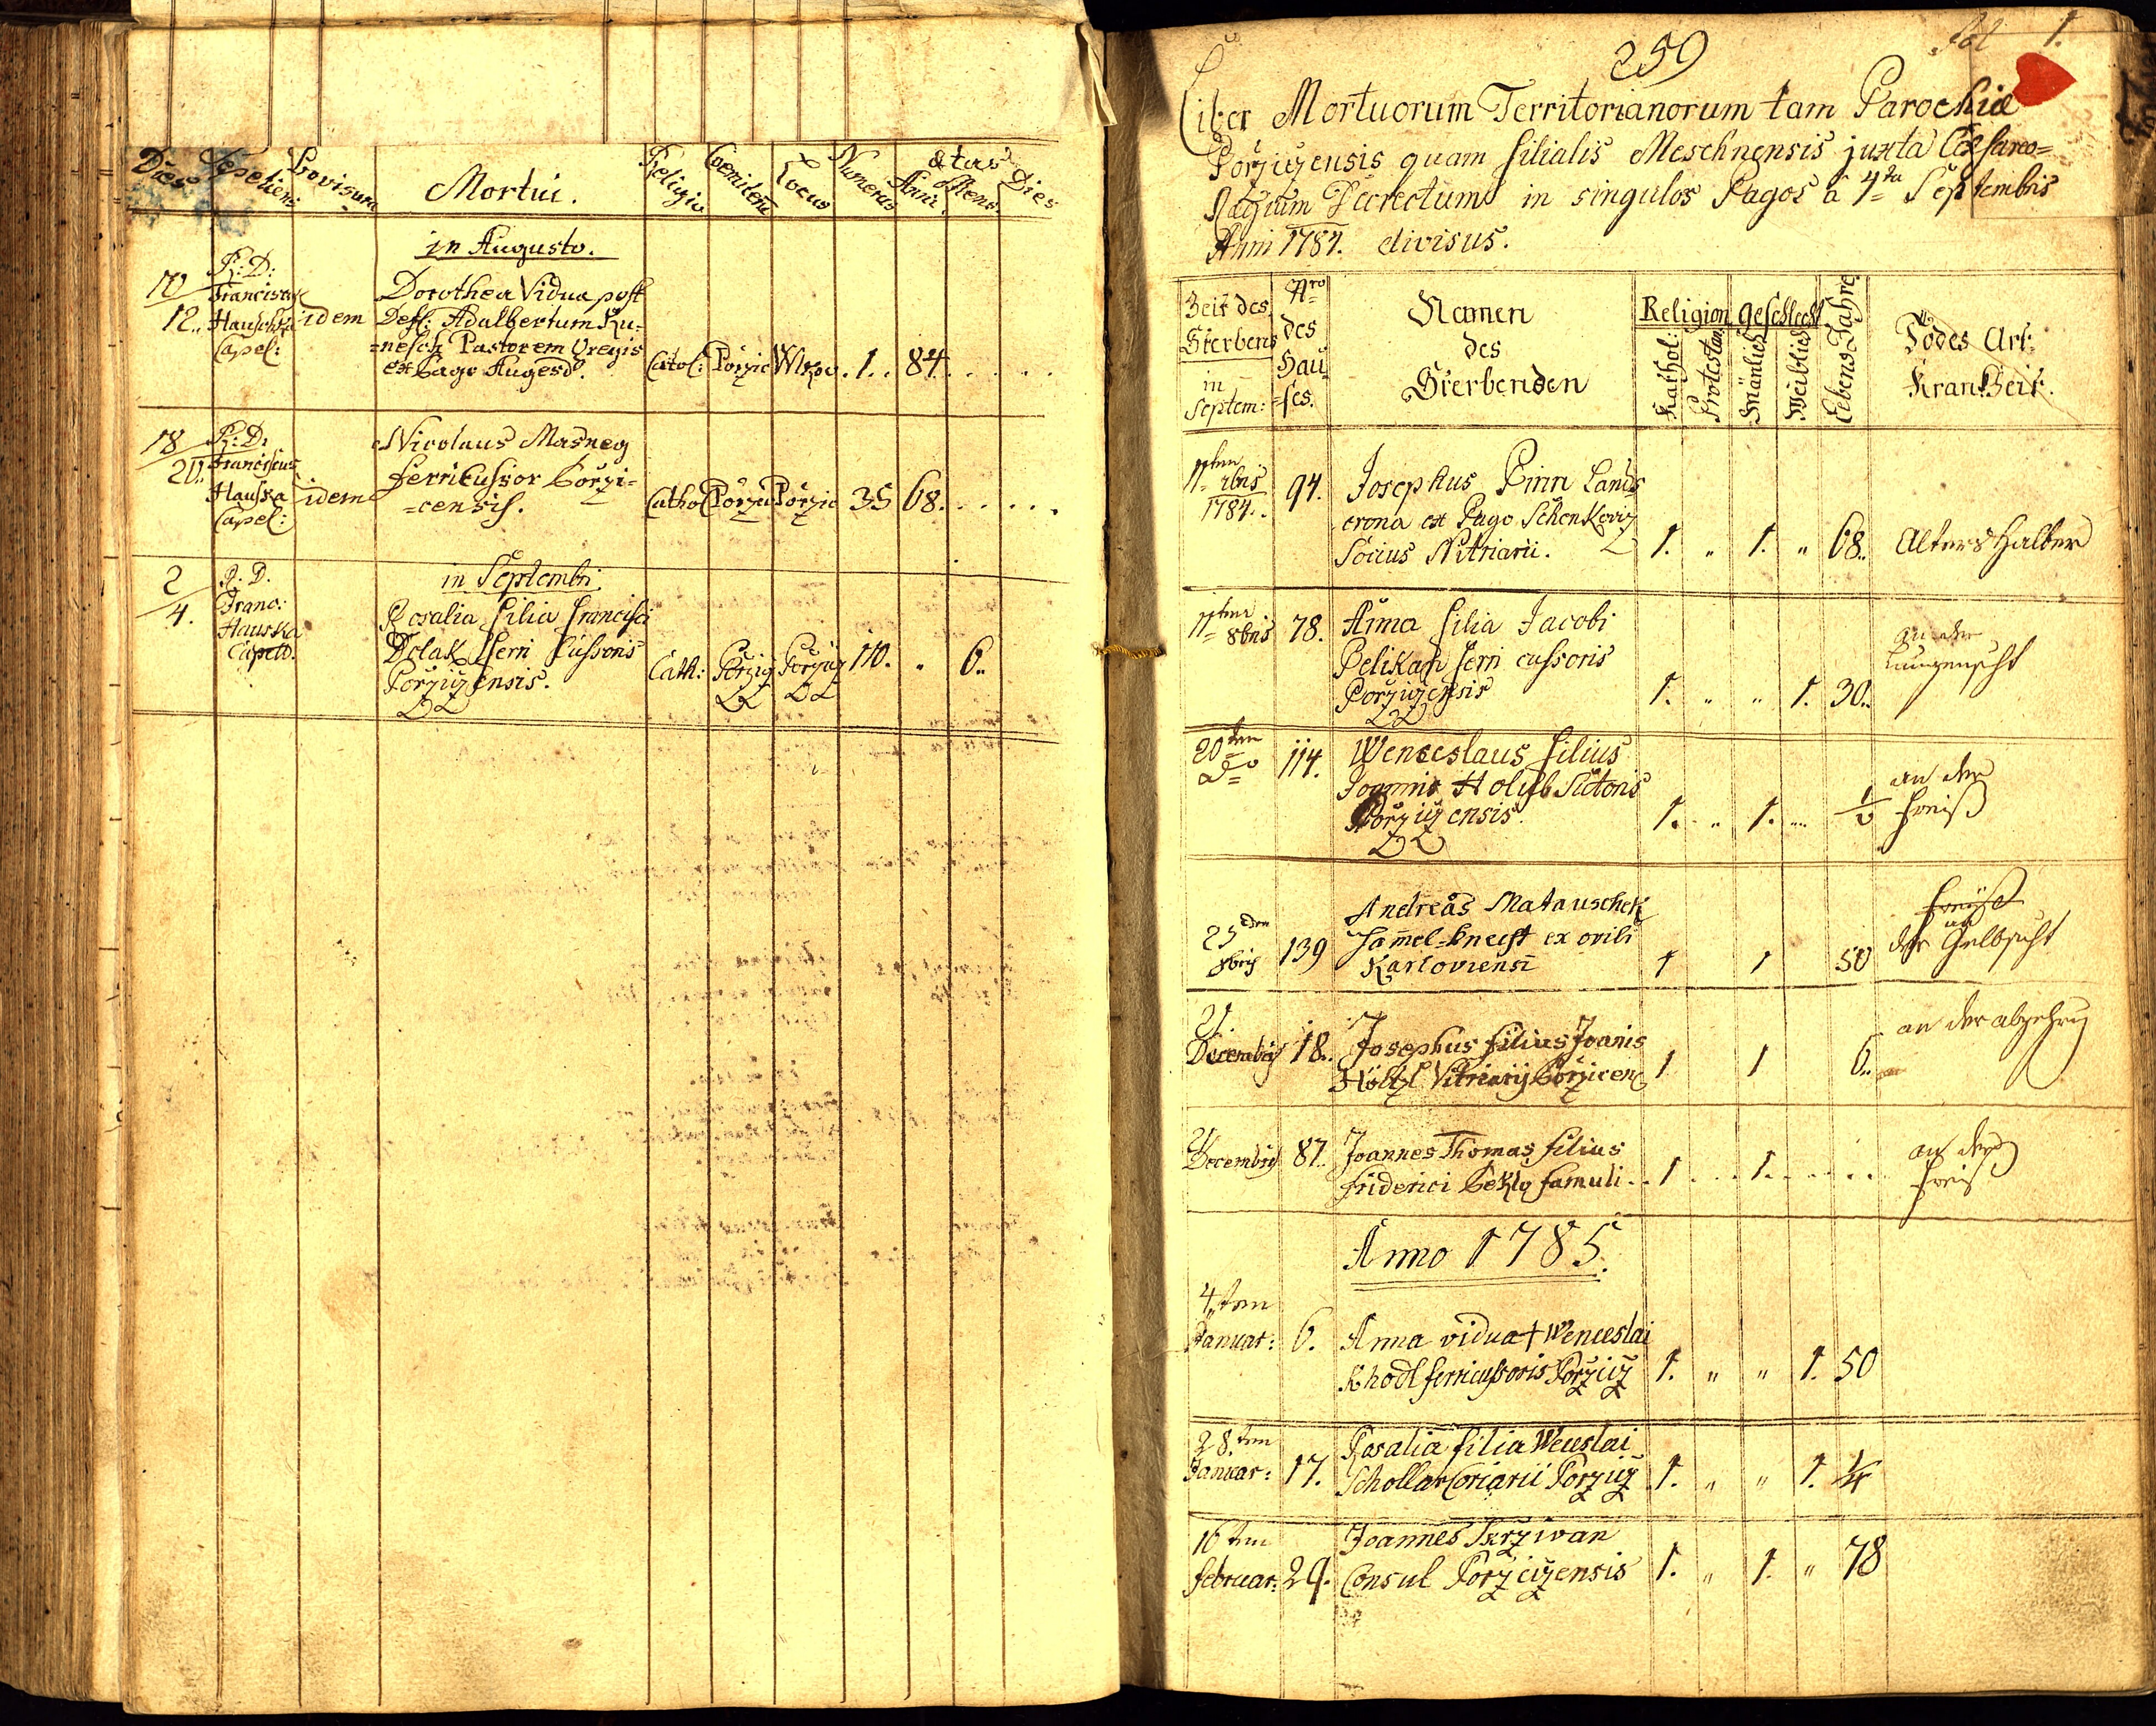 Dies
Sepeliens
Provisura
Mortui.
Religio
Locus
Numerus
Ætas
Anni
Mens:
Dies
in Augusto.
10/12..
R: D:
Franciscus
Hauschka
Capel:
idem
Dorothea Vidua post
Def: Adalbertum Ku=
=nesch Pastorem Gregis
ex Pago Augezd.
Catol: Porzic Wlkov. 1.. 84. . . . .
18/20..
R: D:
Franciscus
Hauska
Capel:
idem
Nicolaus Masneg
ferricussor Porzi=
=censis.
Cathol Porzic Porzic 35 68. . . . . .
in Septembri
2/4.
R: D.
Franc:
Hauska
Capell.
Rosalia filia Francisci
Dolak ferri Cussoris
Porziczensis.
Cath: Porzicz Porzicz 110. „ 6..
259
fol 1.
Liber Mortuorum Territorianorum tam Parochiæ
Porziczensis quam filialis Meschnensis juxta Cæsareo=
Regium Decrectum in singulos Pagos a 4ta Septembris
Anni 1784. divisus.
Zeit des
Sterbens
in
Septem:
Nro
des
Hau
=ses.
Namen
des
Sterbenden
Religion
Kathol:
Protestan:
Geschlecht
Mänlich
Weiblich
Lebens Jahre
Todes Art
Krankheit.
11ten
7bris
1784..
94.
Josephus Pinn Lands
crona ex Pago Schenkoviz
Socius Vitriarii.
1. „ 1. „ 68.. Alters halber
11ten
8bris
78.
Anna filia Jacobi
Pelikan ferri cussoris
Porziczensis
1. „ „ 1. 30..
an der
Lungensucht
20ten
do
114.
Wenceslaus filius
Joannis Holub Sutoris
Porziczensis.
1. „ 1. „ ½
an der
Freiß
25ten
8bris
139
Andreas Matauschek
Hamel=knecht ex ovili
Karloviensi
1 1 50
an
der Gelbsucht
Decembris 18..
Josephus filius Joanis
Höltzl Vitriarij Porzicens
1 1 6..
an der abzehrung
Decembris 87..
Joannes Thomas filius
Friderici Pekly famuli . . 1 . . . 1. . . . . .
an der
Freiß
Anno 1785.
4ten
Januar: 6.
Anna vidua † Wenceslai
Khodl ferricussoris Porzicz
1. „ „ 1. 50
28.ten
Januar: 17.
Rosalia filia Wenceslai
Schollar Coriarii Porzicz
1. „ „ 1. ¼
16ten
Februar: 29.
Joannes Skrziwan
Consul Porziczensis
1. „ 1. „ 78